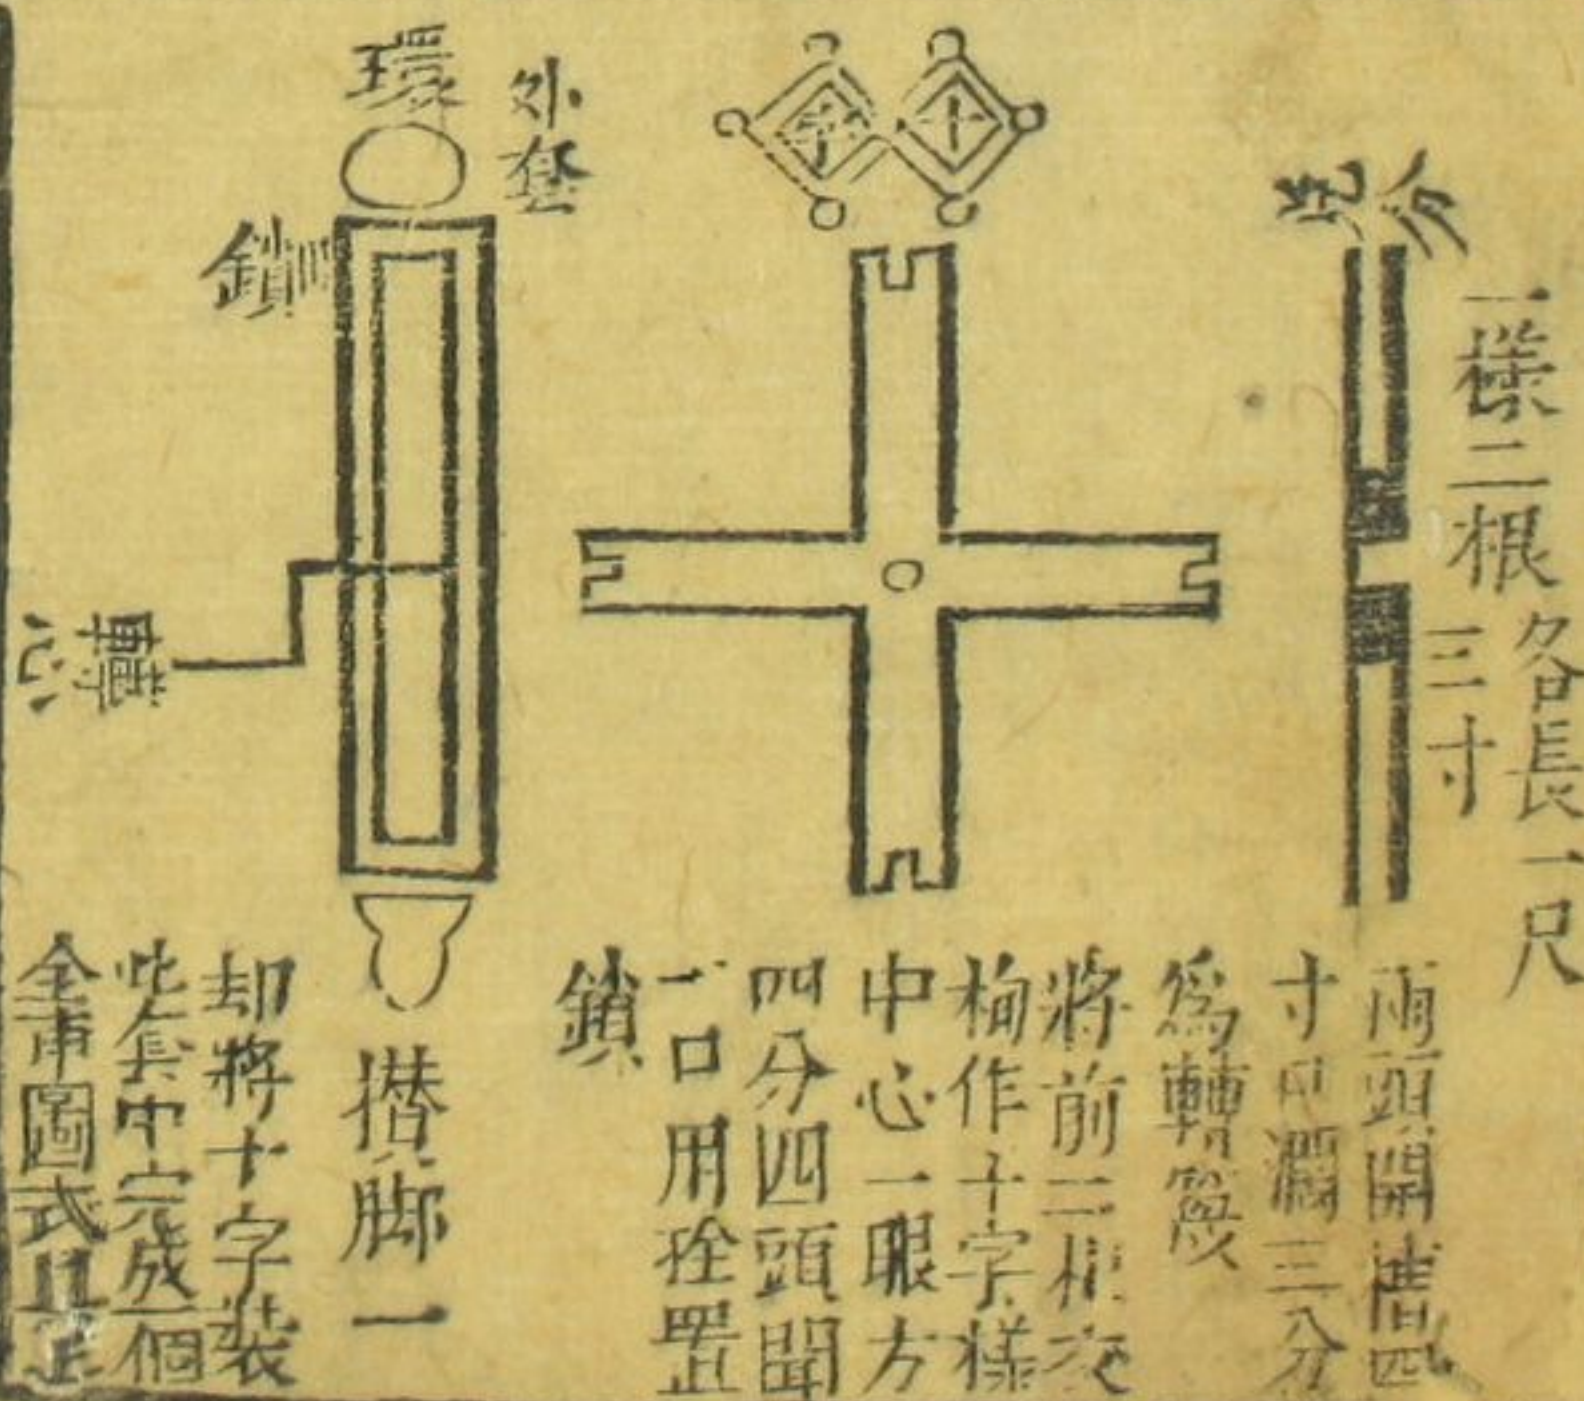 分
一樣二根
各長一尺
三寸
兩頭開漕四
寸中濶三分
為轉
將前二根交
栒作十字樣
中心一眼方
四分四頭開
一口用拴置
鎖
十字
外套
環
鎖
轉心
攅脚一
却將十字裝
此套中完成一個
全圖式具